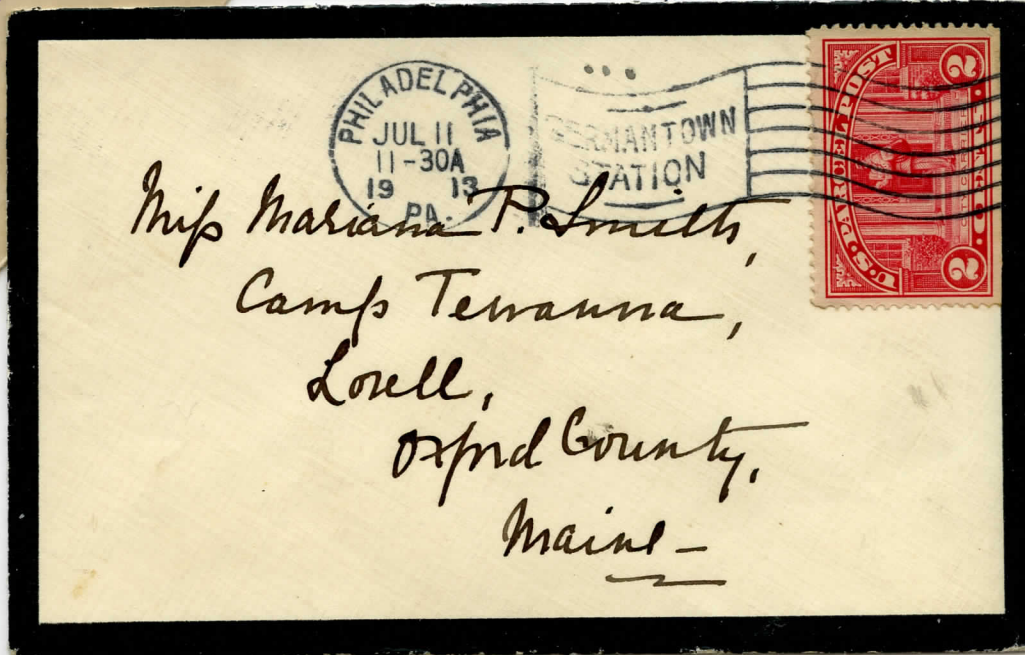 PHILADELPHIA
JUL 11
11-30A
19 13
PA.
GERMANTOWN
STATION
U.S. PARCEL POST
2
2
Miss Mariana P. Smith,
Camp Tewanna,
Lovell,
Oxford County,
Maine